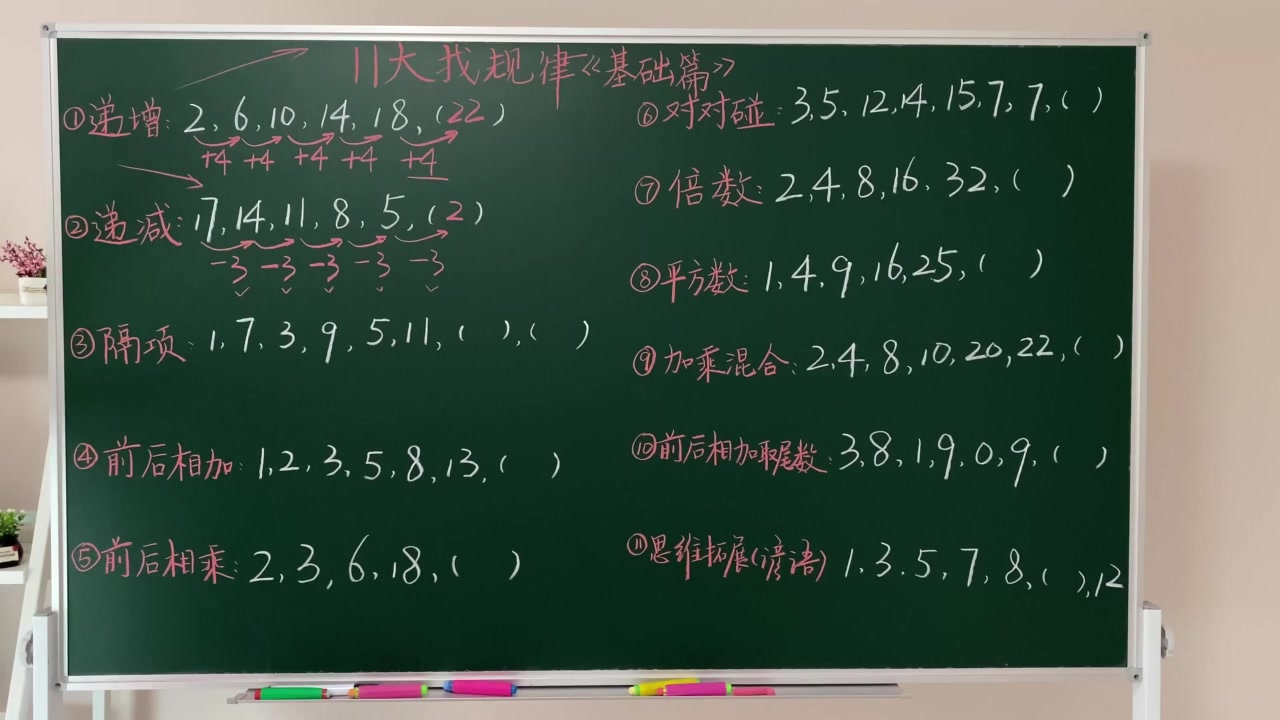 11大找规律《基础篇》
①递增: 2, 6, 10, 14, 18, (22)
+4 +4 +4 +4 +4
②递减: 17, 14, 11, 8, 5, (2)
-3 -3 -3 -3 -3
③隔项: 1, 7, 3, 9, 5, 11, ( ), ( )
④前后相加: 1, 2, 3, 5, 8, 13, ( )
⑤前后相乘: 2, 3, 6, 18, ( )
⑥对对碰: 3, 5, 12, 14, 15, 7, 7, ( )
⑦倍数: 2, 4, 8, 16, 32, ( )
⑧平方数: 1, 4, 9, 16, 25, ( )
⑨加乘混合: 2, 4, 8, 10, 20, 22, ( )
⑩前后相加取尾数: 3, 8, 1, 9, 0, 9, ( )
⑪思维拓展(谚语) 1, 3, 5, 7, 8, ( ), 12